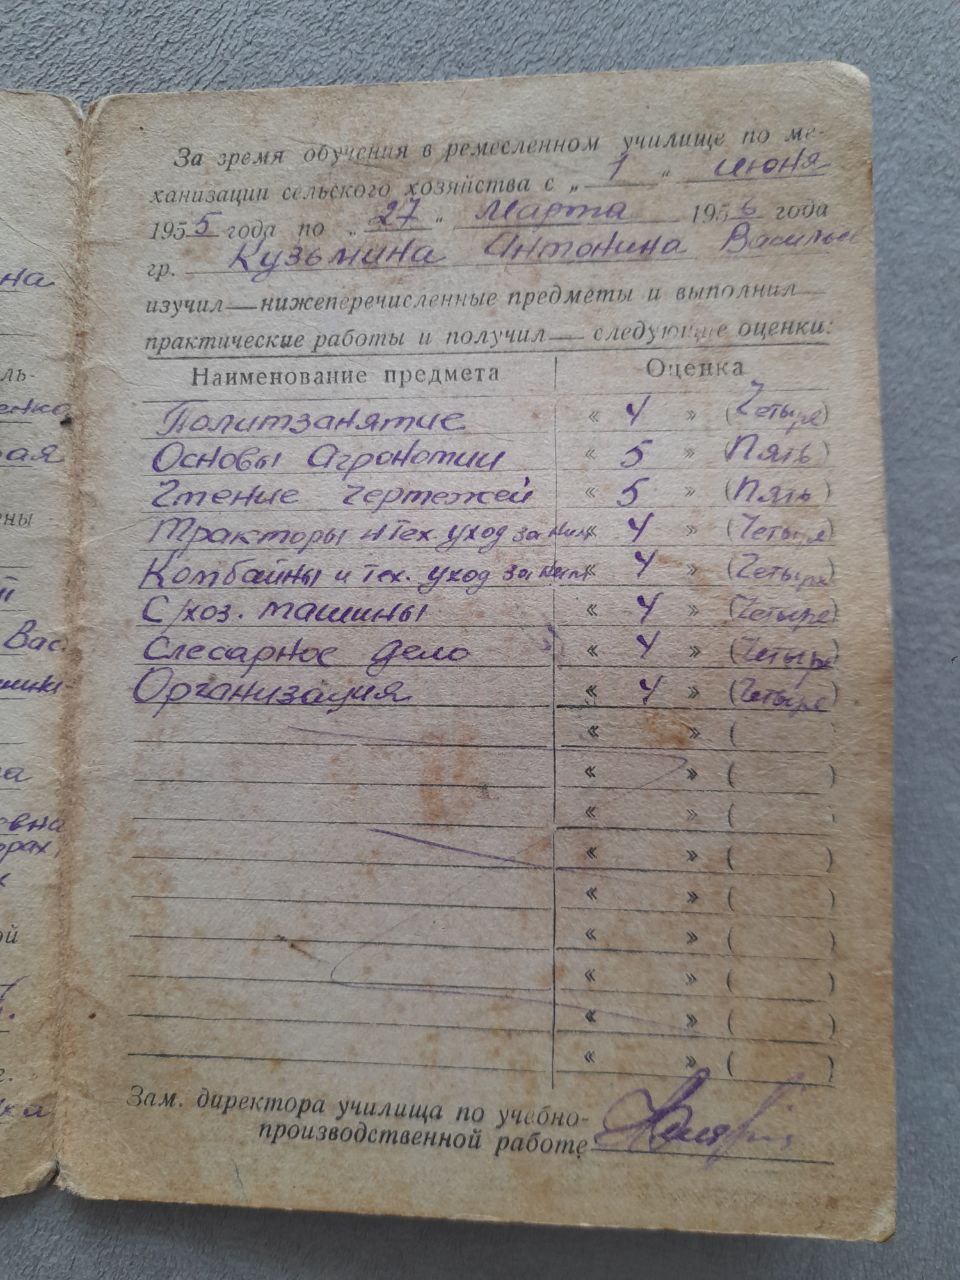 За время обучения в ремесленном училище по ме-
ханизации сельского хозяйства с „ 1 " июня
1955 года по „ 27 " марта 1956 года
гр. Кузьмина Антонина Василье
изучил — нижеперечисленные предметы и выполнил —
практические работы и получил — следующие оценки:
Наименование предмета Оценка
Политзанятие « 4 » (Четыре)
Основы Агрономии « 5 » (Пять)
Чтение чертежей « 5 » (Пять)
Тракторы и Тех. уход за ним « 4 » (Четыре)
Комбайны и тех. уход за ним « 4 » (Четыре)
С/хоз. машины « 4 » (Четыре)
Слесарное дело « 4 » (Четыре)
Организация « 4 » (Четыре)
« » (
« » ( )
« » (
« » ( )
« » ( )
« » ( )
« » ( )
« » ( )
« » ( )
Зам. директора училища по учебно-
производственной работе
на
ль-
енко
рая
ены
й
Вас.
ма
евна
орах,
х
ой
г.
ка